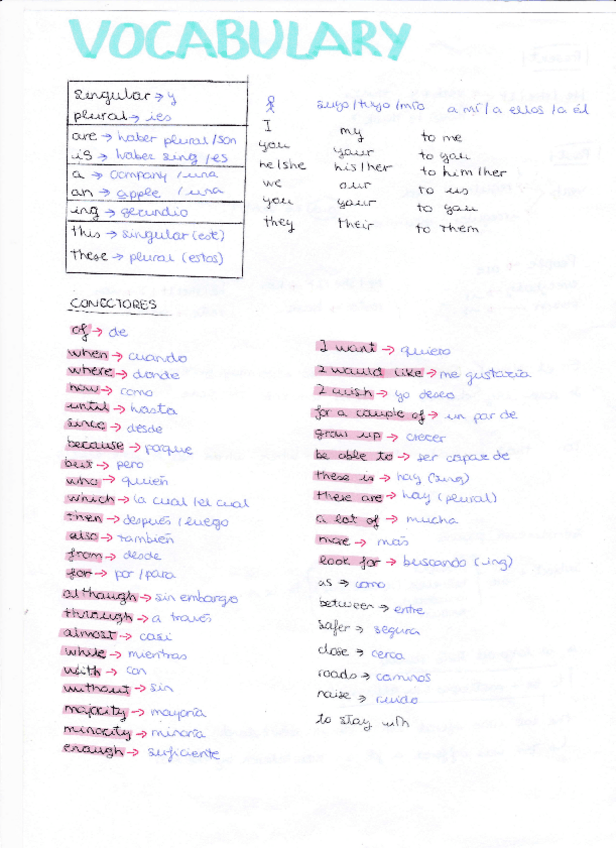 VOCABULARY
singular → y
plural → ies
are → haber plural/son
is → haber sing/es
a → company/una
an → apple/una
ing → gerundio
this → singular (este)
these → plural (estos)
suyo/tuyo/mío a mí/a ellos/a él
I my to me
you your to you
he/she his/her to him/her
we our to us
you your to you
they their to them
CONECTORES
of → de
when → cuando
where → donde
how → como
until → hasta
since → desde
because → porque
but → pero
who → quien
which → la cual/el cual
then → después/luego
also → también
from → desde
for → por/para
although → sin embargo
through → a través
almost → casi
while → mientras
with → con
without → sin
majority → mayoría
minority → minoría
enough → suficiente
I want → quiero
I would like → me gustaría
I wish → yo deseo
for a couple of → un par de
grow up → crecer
be able to → ser capaz de
there is → hay (sing)
there are → hay (plural)
a lot of → mucha
more → más
look for → buscando (ing)
as → como
between → entre
safer → segura
close → cerca
roads → caminos
noise → ruido
to stay with